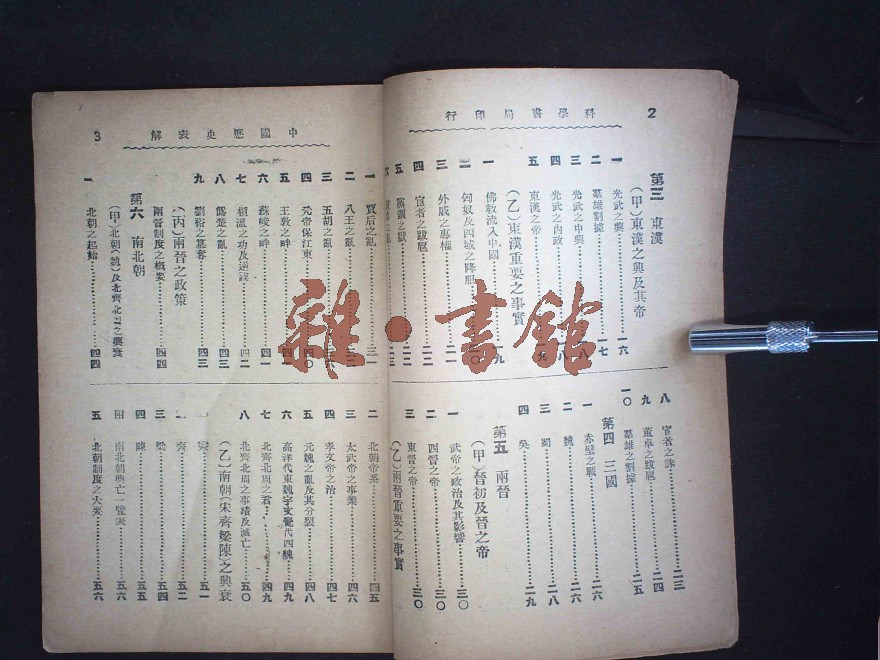 2
行印局書學科
第三 東漢
(甲)東漢之興及其帝
一 光武之興 一六
二 羣雄割據 一七
三 光武之中興 一八
四 光武之內政 一八
五 東漢之帝 一九
(乙)東漢重要之事實
一 佛敎流入中國 一九
二 匈奴及西域之降服
三 外戚之專橫 二一
四 宦者之跋扈 二二
五 黨錮之獄
八 宦者之誅 二三
九 董卓之跋扈 二四
一〇 羣雄之割據 二五
第四 三國
一 赤壁之戰 二六
二 魏 二六
三 蜀 二八
四 吳 二九
第五 兩晉
(甲)晉初及晉之帝
一 武帝之政治及其影響 三〇
二 西晉之帝 三〇
三 東晉之帝 三〇
(乙)兩晉重要之事實
3
解表史歷國中
一 賈后之亂
二 八王之亂
三 五胡之亂
四 元帝保江東
五 王敦之畔
六 蘇峻之畔 四一
七 桓溫之功及逆謀 四二
八 僞楚之亂 四三
九 劉裕之篡奪 四三
(丙)兩晉之政策
兩晉制度之概要 四四
第六 南北朝
(甲)北朝(魏)及北齊北周之興衰
一 北朝之起始 四四
二 北朝帝系 四五
三 太武帝之事業 四六
四 孝文帝之治 四七
五 元魏之亂及其分裂 四八
六 高洋代東魏宇文覺代西魏 四九
七 北齊北周之君 四九
八 北齊北周之事蹟及滅亡 五〇
(乙)南朝(宋齊梁陳)之興衰
一 宋 五一
二 齊 五二
三 梁 五四
四 陳 五五
附 南北朝興亡一覽表 五六
五 北朝制度之大要 五六
雜·書館